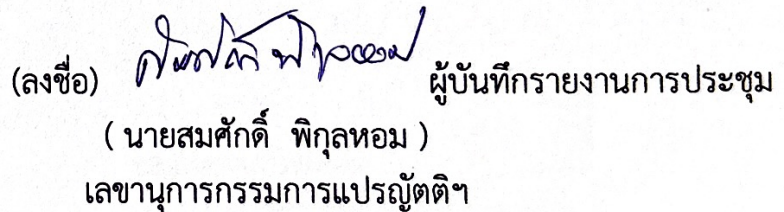 (ลงชื่อ) ผู้บันทึกรายงานการประชุม
( นายสมศักดิ์ พิกุลหอม )
เลขานุการกรรมการแปรญัตติฯ